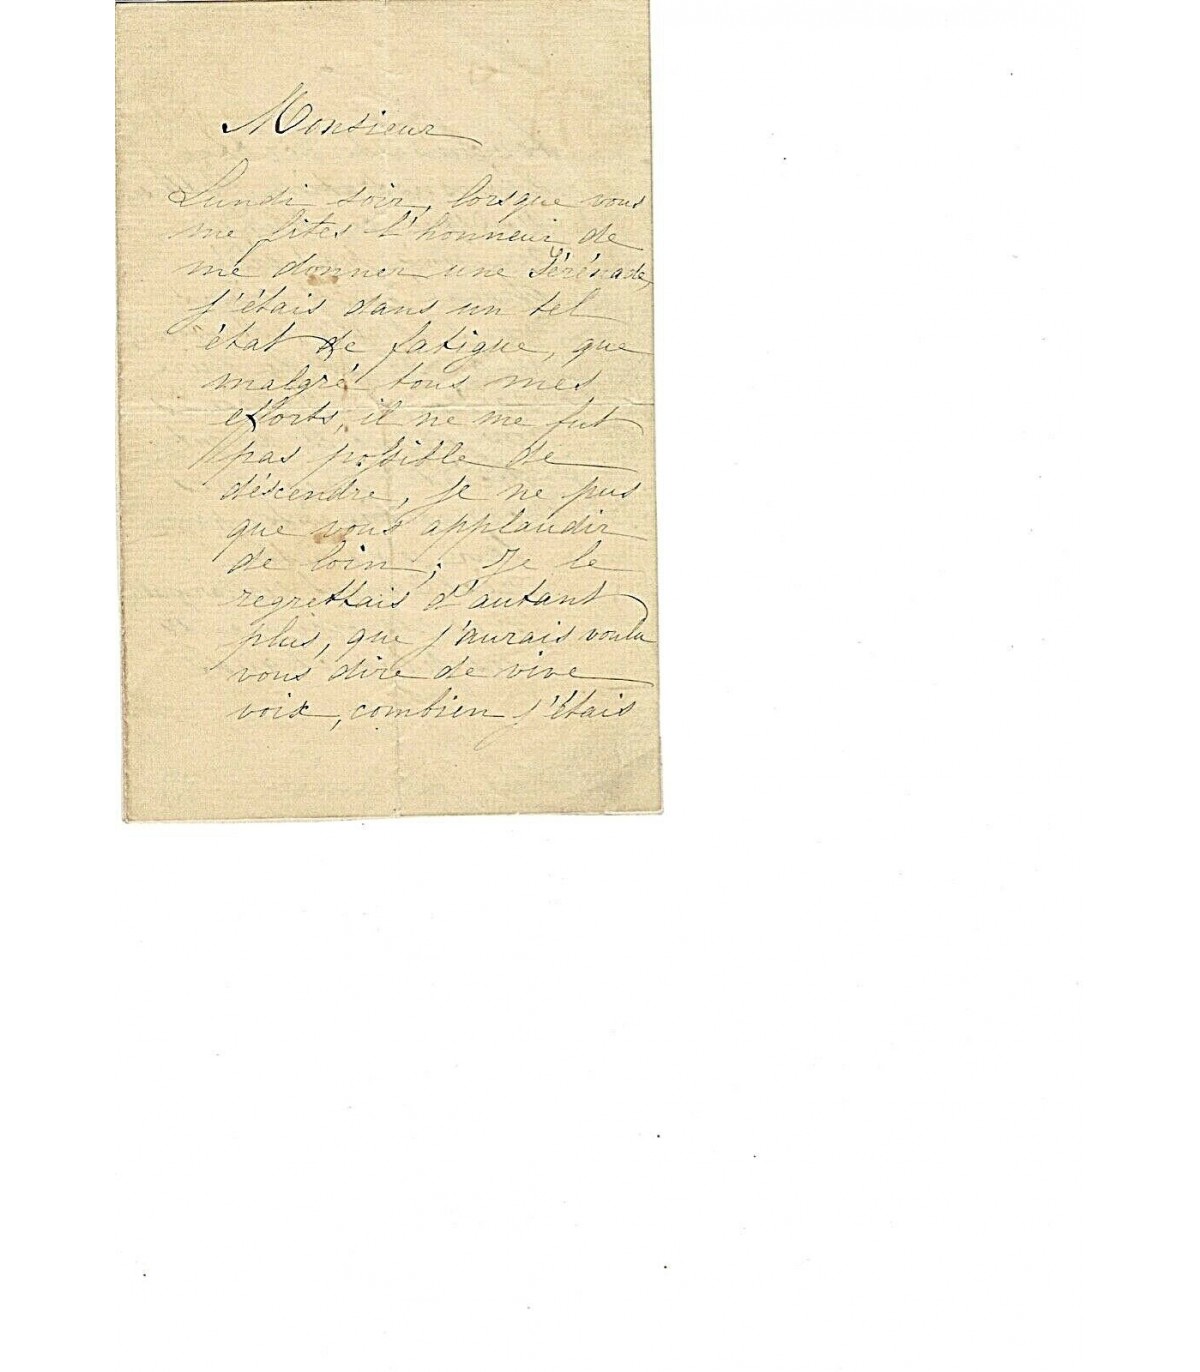 Monsieur
Lundi soir, lorsque vous
me fites l'honneur de
me donner une Sérénade,
j'étais dans un tel
état de fatigue, que
malgré tous mes
efforts, il ne me fut
pas possible de
déscendre, je ne pus
que vous applaudir
de loin; Je le
regrettais d'autant
plus, que j'aurais voulu
vous dire de vive
voix, combien j'étais